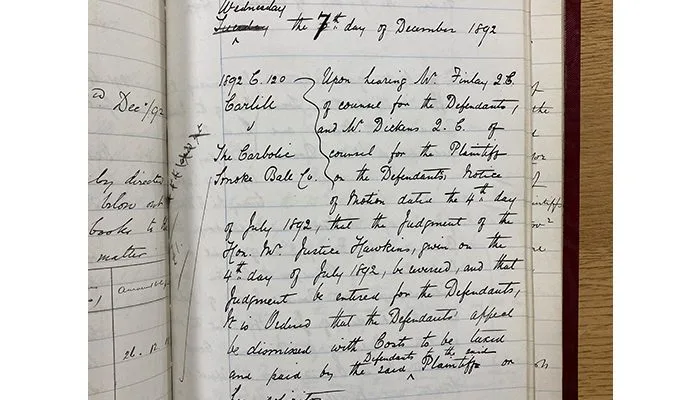 Wednesday
Tuesday the 7th day of December 1892
1892 C. 120 Upon hearing Mr. Finlay Q.C.
Carlill of counsel for the Defendants,
v and Mr. Dickens Q.C. of
The Carbolic counsel for the Plaintiff
Smoke Ball Co. on the Defendants Notice
of Motion dated the 4th day
of July 1892, that the Judgment of the
Hon. Mr. Justice Hawkins, given on the
4th day of July 1892, be reversed, and that
Judgment be entered for the Defendants,
It is Ordered that the Defendants' appeal
be dismissed with Costs to be taxed
Defendants to the said
and paid by the said Plaintiff or
Dec. /92
by directed
below
books to
matter
26.
of
the